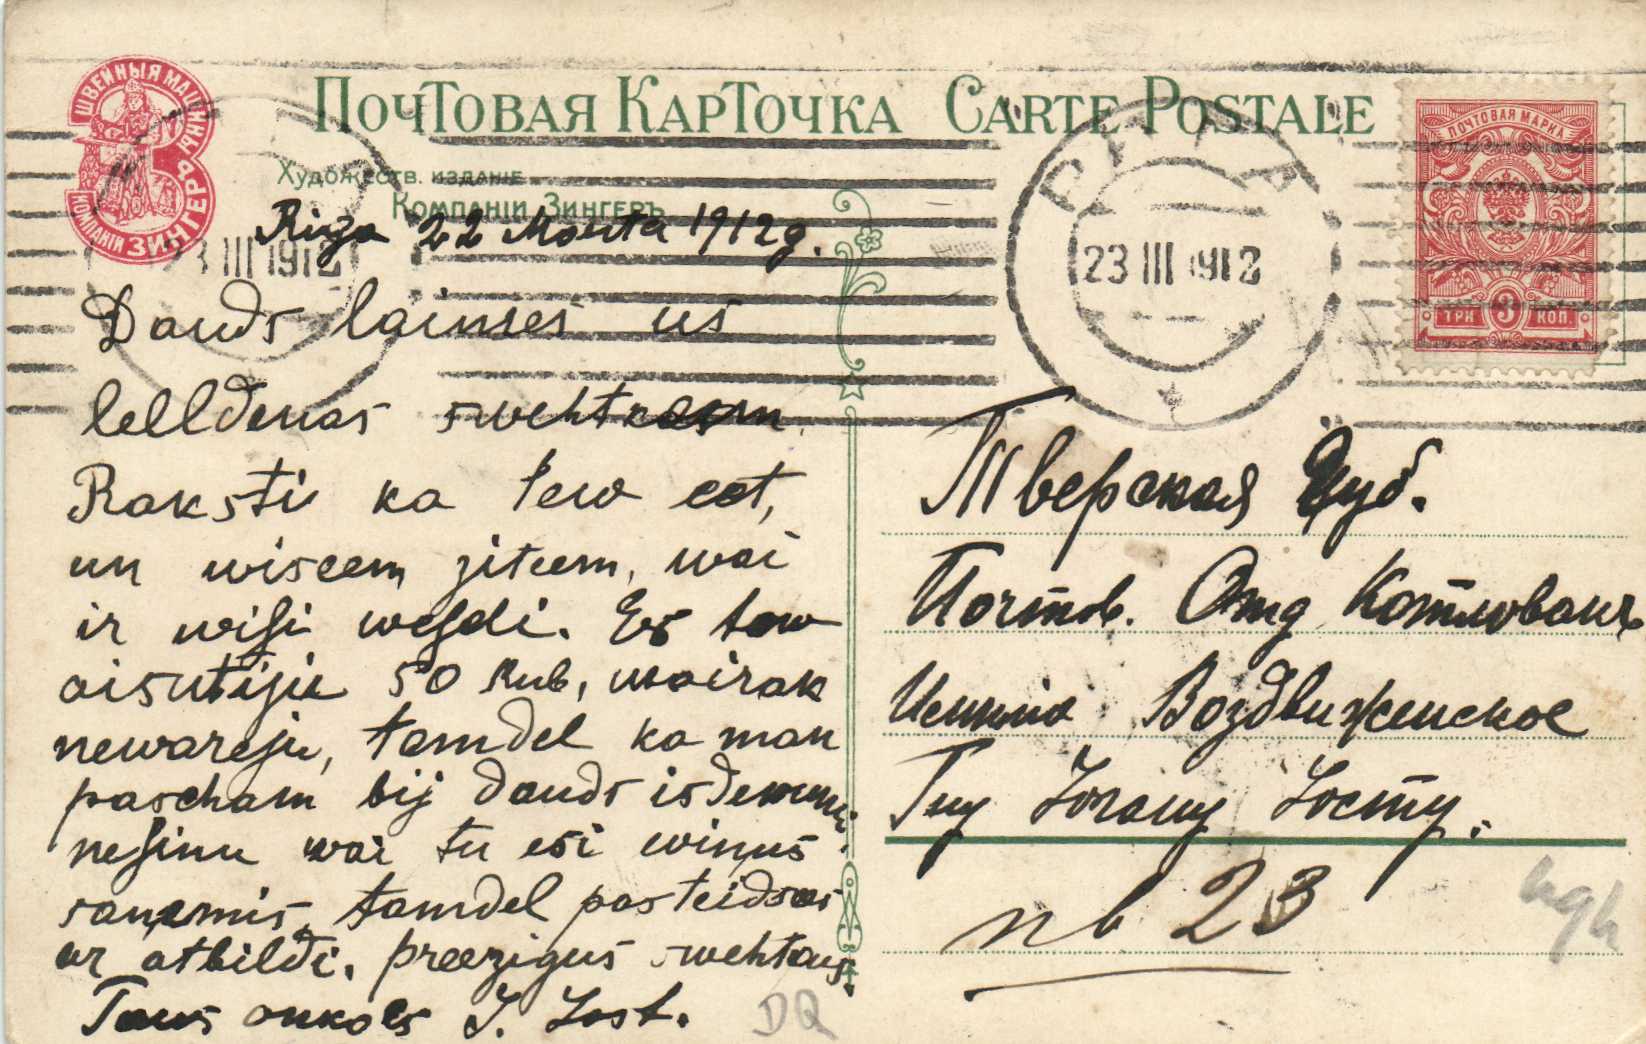 ШВЕЙНЫЯ МАШИНЫ
КОМПАНІИ ЗИНГЕРЪ
ПОЧТОВАЯ КАРТОЧКА CARTE POSTALE
Художеств. издание
Компаніи Зингеръ
ПОЧТОВАЯ МАРКА
ТРИ 3 КОП.
РИГА
23 III 1912
23 III 1912
Riga 22 Marta 1912 g.
Dauds laimes us
leeldenas swehtkeem.
Rakstu ka tew eet,
un wiseem ziteem, wai
ir wisi weseli. Es tew
aisutiju 50 Rub, wairak
newareju, tamdel ka man
pascham bij dauds isdewumu
nesinu wai tu esi winus
sanemis, tamdel pasteidsees
ar atbildi. preezigus swehtkus
Taws onkols J. Jost.
Тверская Губ.
Почтов. Отд Котлованъ
Воздвиженское
Гну Іогану Іосту.
№ 23
hgh
DQ